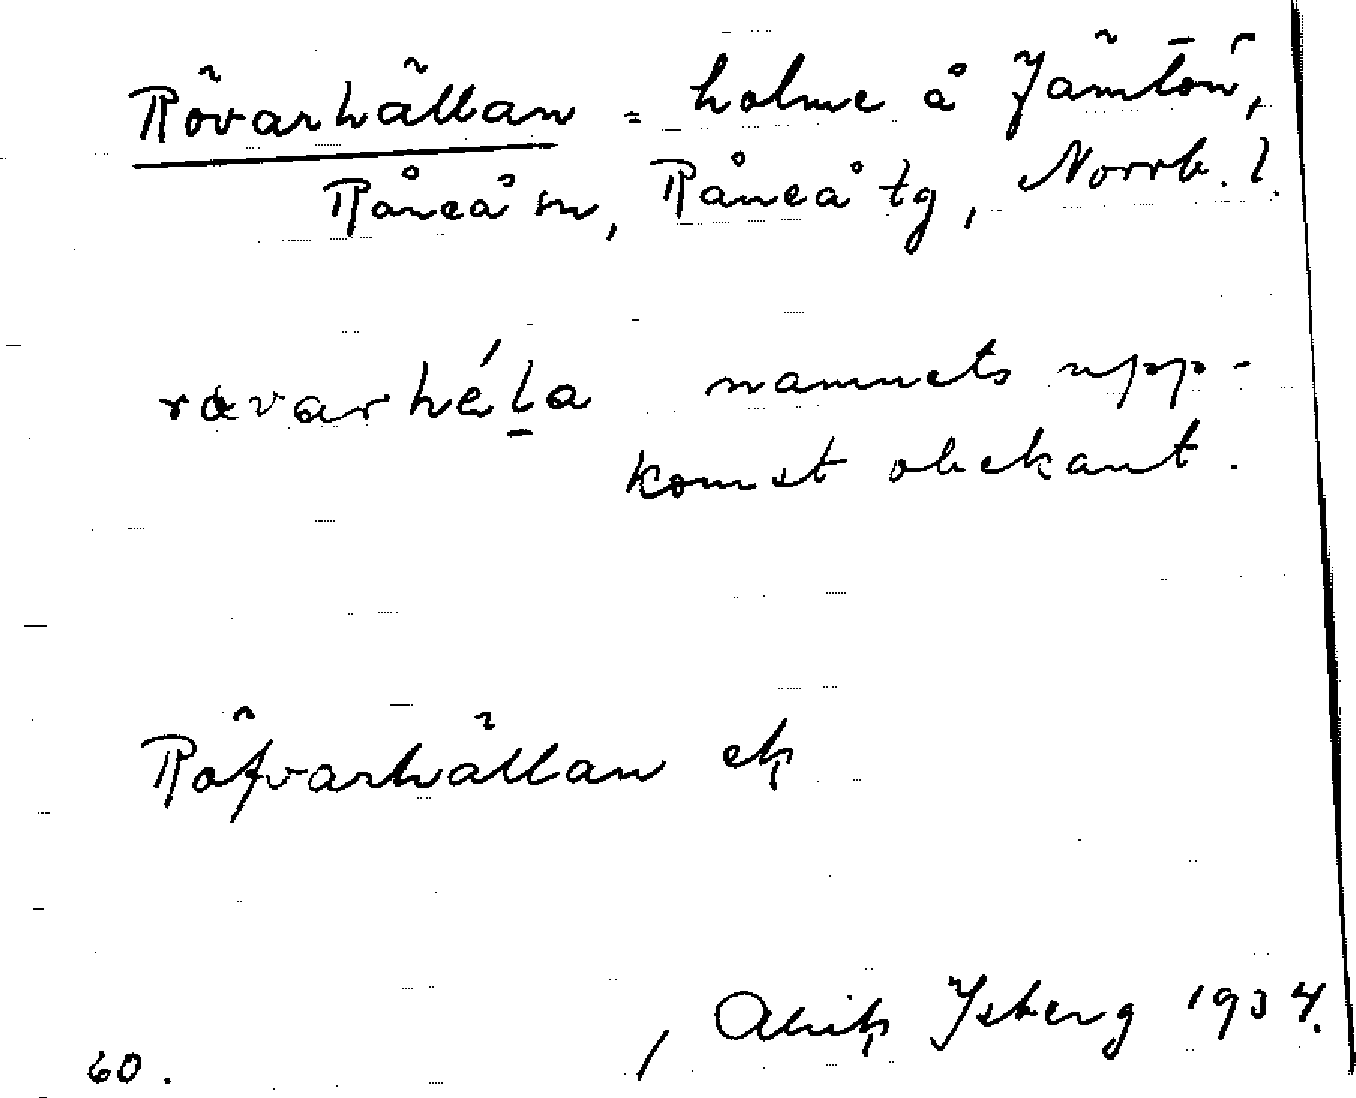 Rövarhällan = holme å Jämtön,
Råneå sn, Råneå tg, Norrb. l.
rævarhéḷa namnets upp-
komst obekant.
Röfvarhällan ek
Alrik Ysberg 1934.
60.